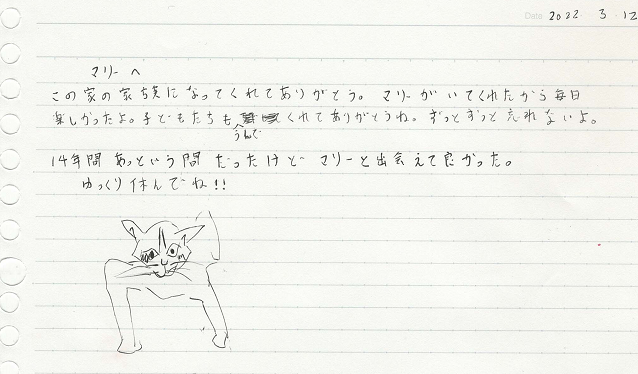 Date 2022 3 12
マリーへ
この家の家族になってくれてありがとう。マリーがいてくれたから毎日
楽しかったよ。子どもたちもうんでくれてありがとうね。ずっとずっと忘れないよ。
14年間あっという間だったけどマリーと出会えて良かった。
ゆっくり休んでね!!